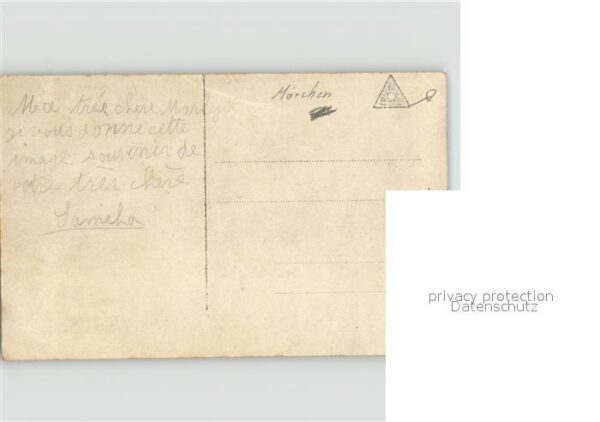 Ma très chère Maryse
je vous donne cette
image souvenir de
votre très chère
Samiha
Märchen
privacy protection
Datenschutz